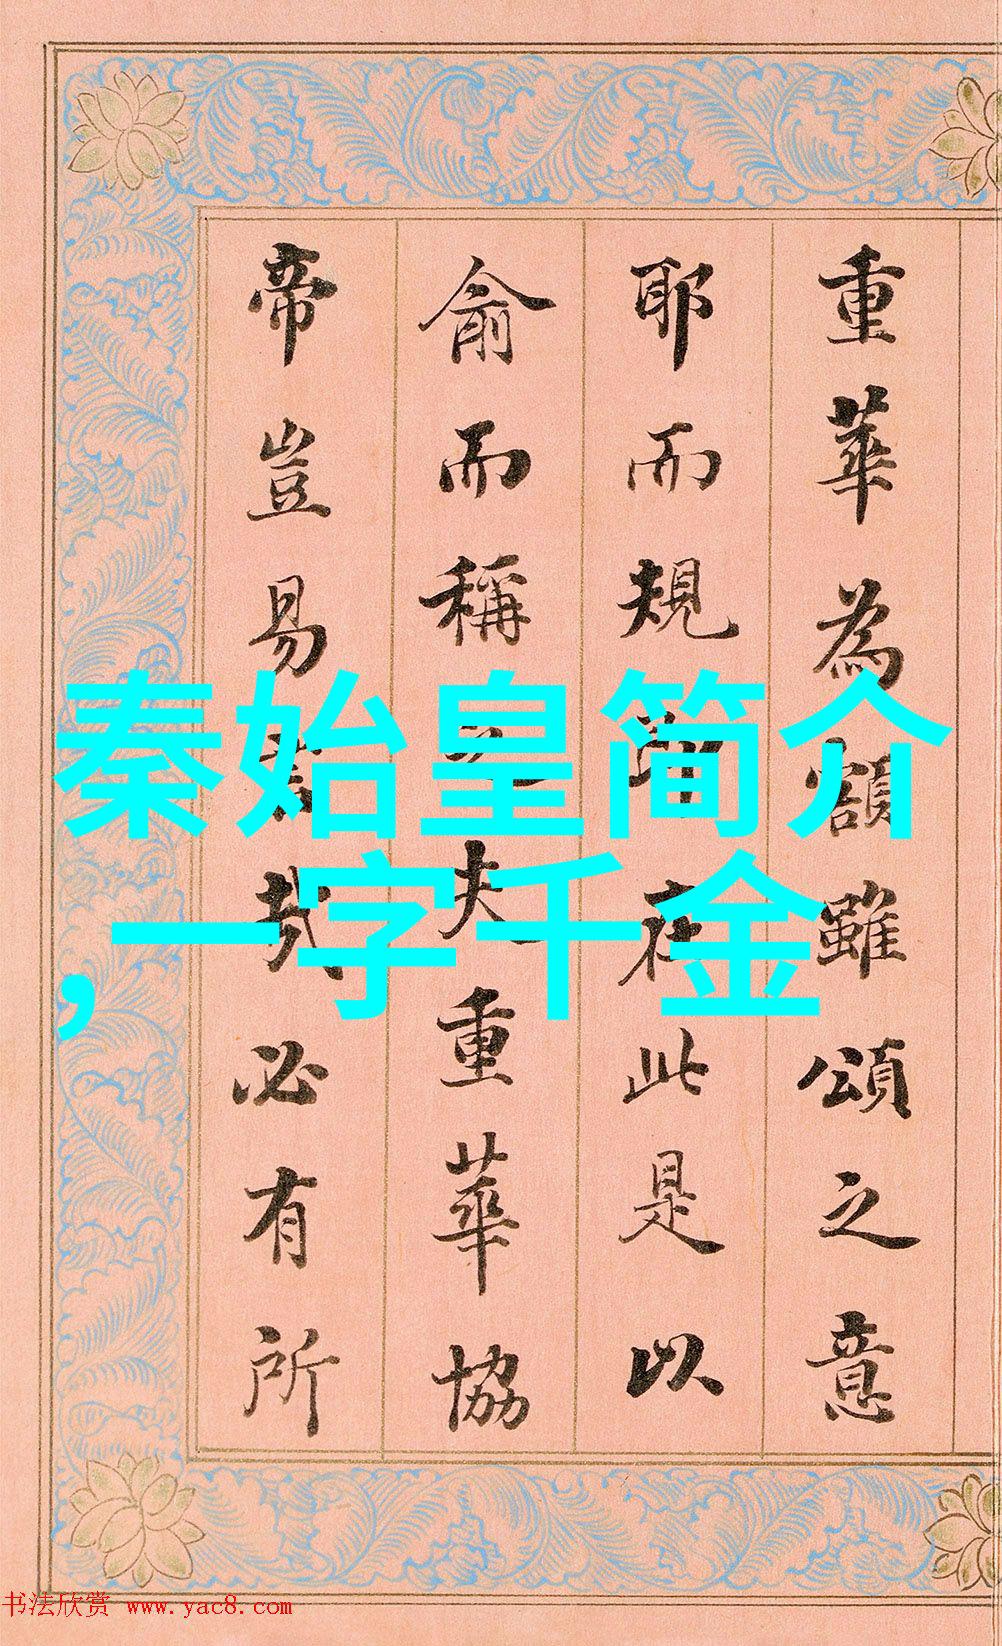 重華為額雖頌之意
耶而規在此是以
俞而稱夫重華協
帝豈易哉必有所
秦始皇简介
,一字千金
书法欣赏 www.yac8.com